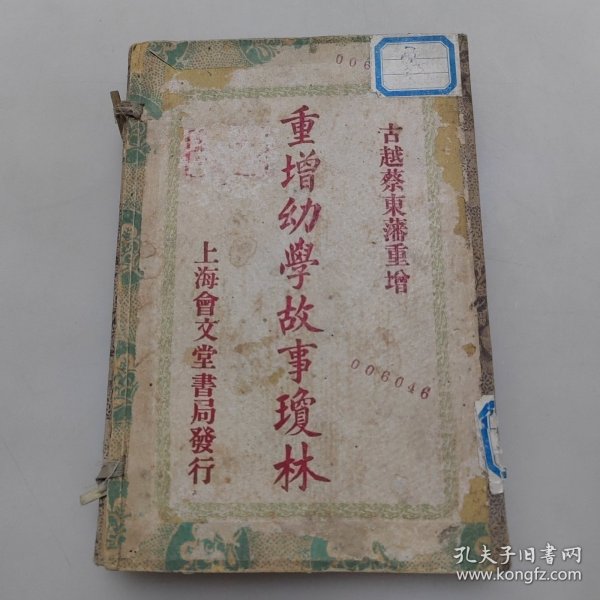 古越蔡東藩重增
重增幼學故事瓊林
上海會文堂書局發行
006046
006
孔夫子旧书网
www.kongfz.com